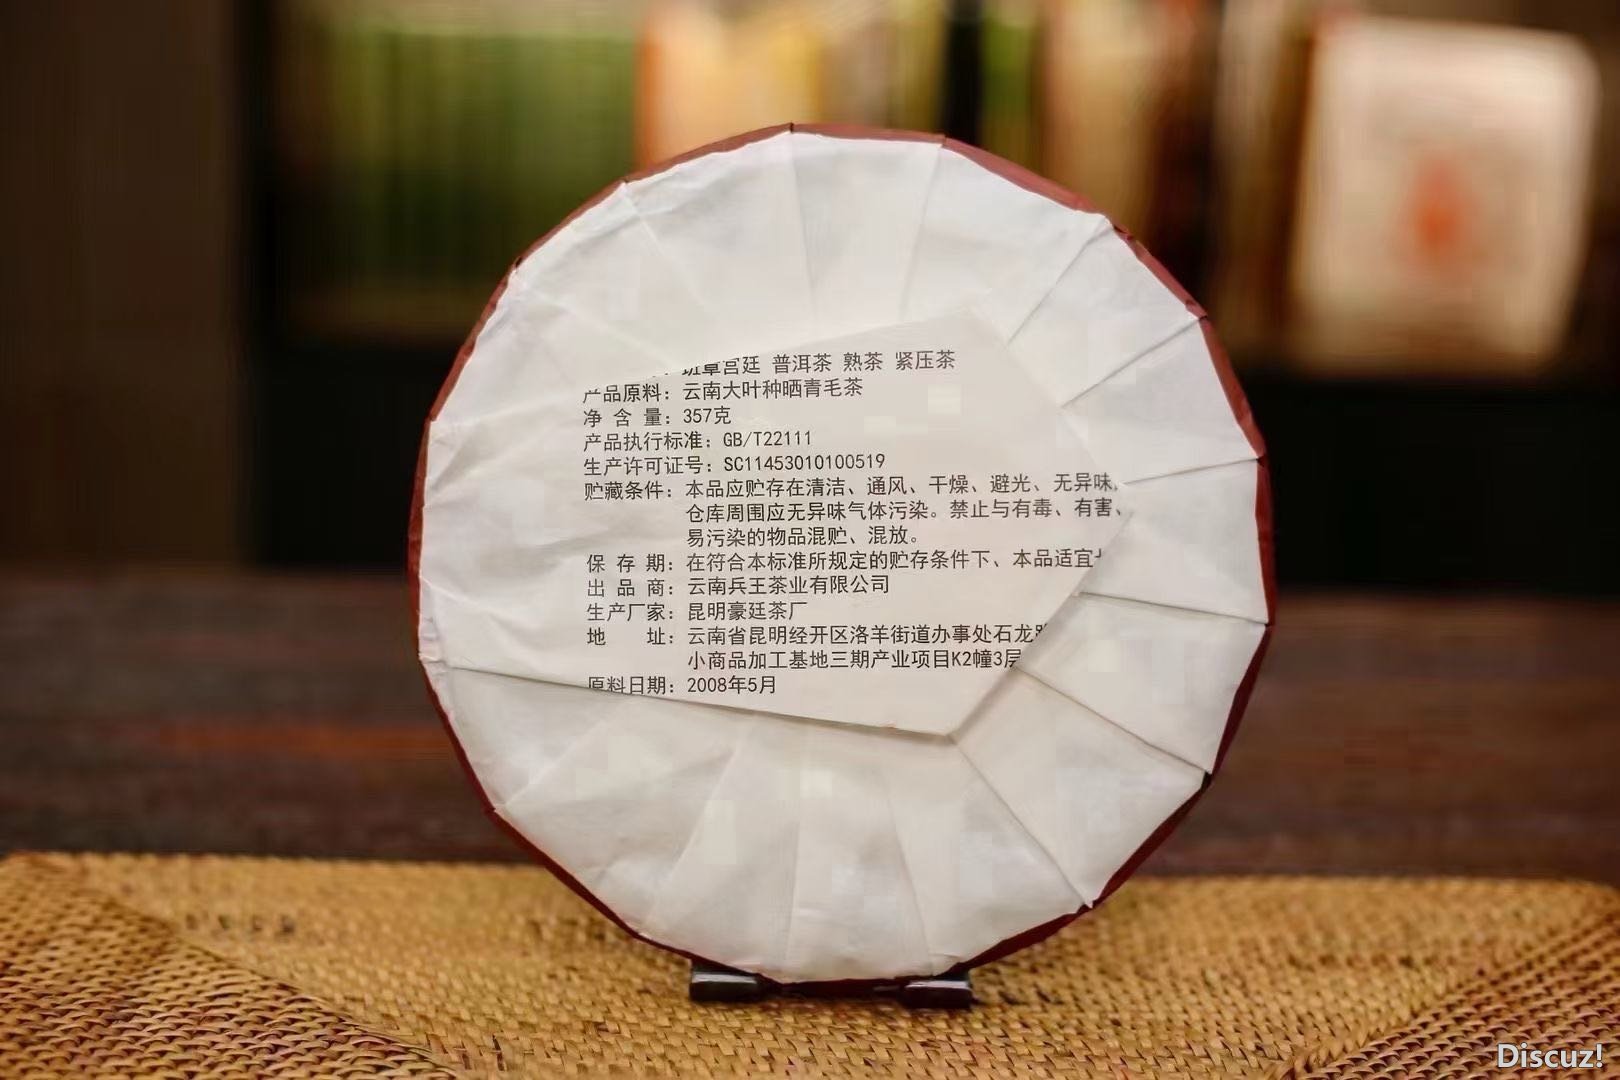 班章宫廷 普洱茶 熟茶 紧压茶
产品原料：云南大叶种晒青毛茶
净 含 量：357克
产品执行标准：GB/T22111
生产许可证号：SC11453010100519
贮藏条件：本品应贮存在清洁、通风、干燥、避光、无异味
仓库周围应无异味气体污染。禁止与有毒、有害、
易污染的物品混贮、混放。
保 存 期：在符合本标准所规定的贮存条件下、本品适宜
出 品 商：云南兵王茶业有限公司
生产厂家：昆明豪廷茶厂
地 址：云南省昆明经开区洛羊街道办事处石龙路
小商品加工基地三期产业项目K2幢3层
原料日期：2008年5月
Discuz!